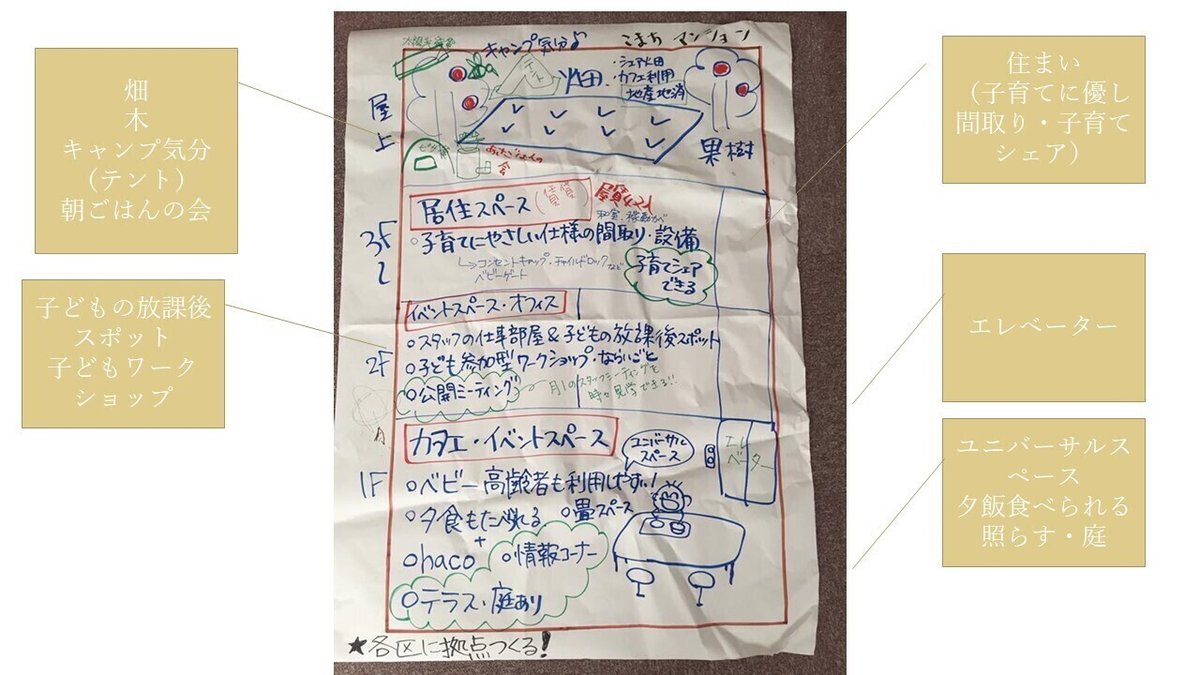 畑
木
キャンプ気分
（テント）
朝ごはんの会
子どもの放課後
スポット
子どもワーク
ショップ
キャンプ気分♪
こまち マンション
テント
畑
・シェア畑
・カフェ利用
地産地消
屋上
果樹
会
居住スペース（賃貸）
3F
〜
○子育てにやさしい仕様の間取り・設備
↳コンセントキャップ・チャイルドロックなど
ベビーゲート
子育てシェア
できる
イベントスペース・オフィス
2F
○スタッフの仕事部屋&子どもの放課後スポット
○子ども参加型ワークショップ・ならいごと
○公開ミーティング
月1のスタッフミーティングを
時々見学できる!!
カフェ・イベントスペース
ユニバーサル
スペース
エレ
ベーター
1F
○ベビー高齢者も利用しやすい!
○夕食もたべれる ○畳スペース
+
○haco ○情報コーナー
○テラス・庭あり
★各区に拠点つくる!
住まい
（子育てに優し
間取り・子育て
シェア）
エレベーター
ユニバーサルス
ペース
夕飯食べられる
照らす・庭